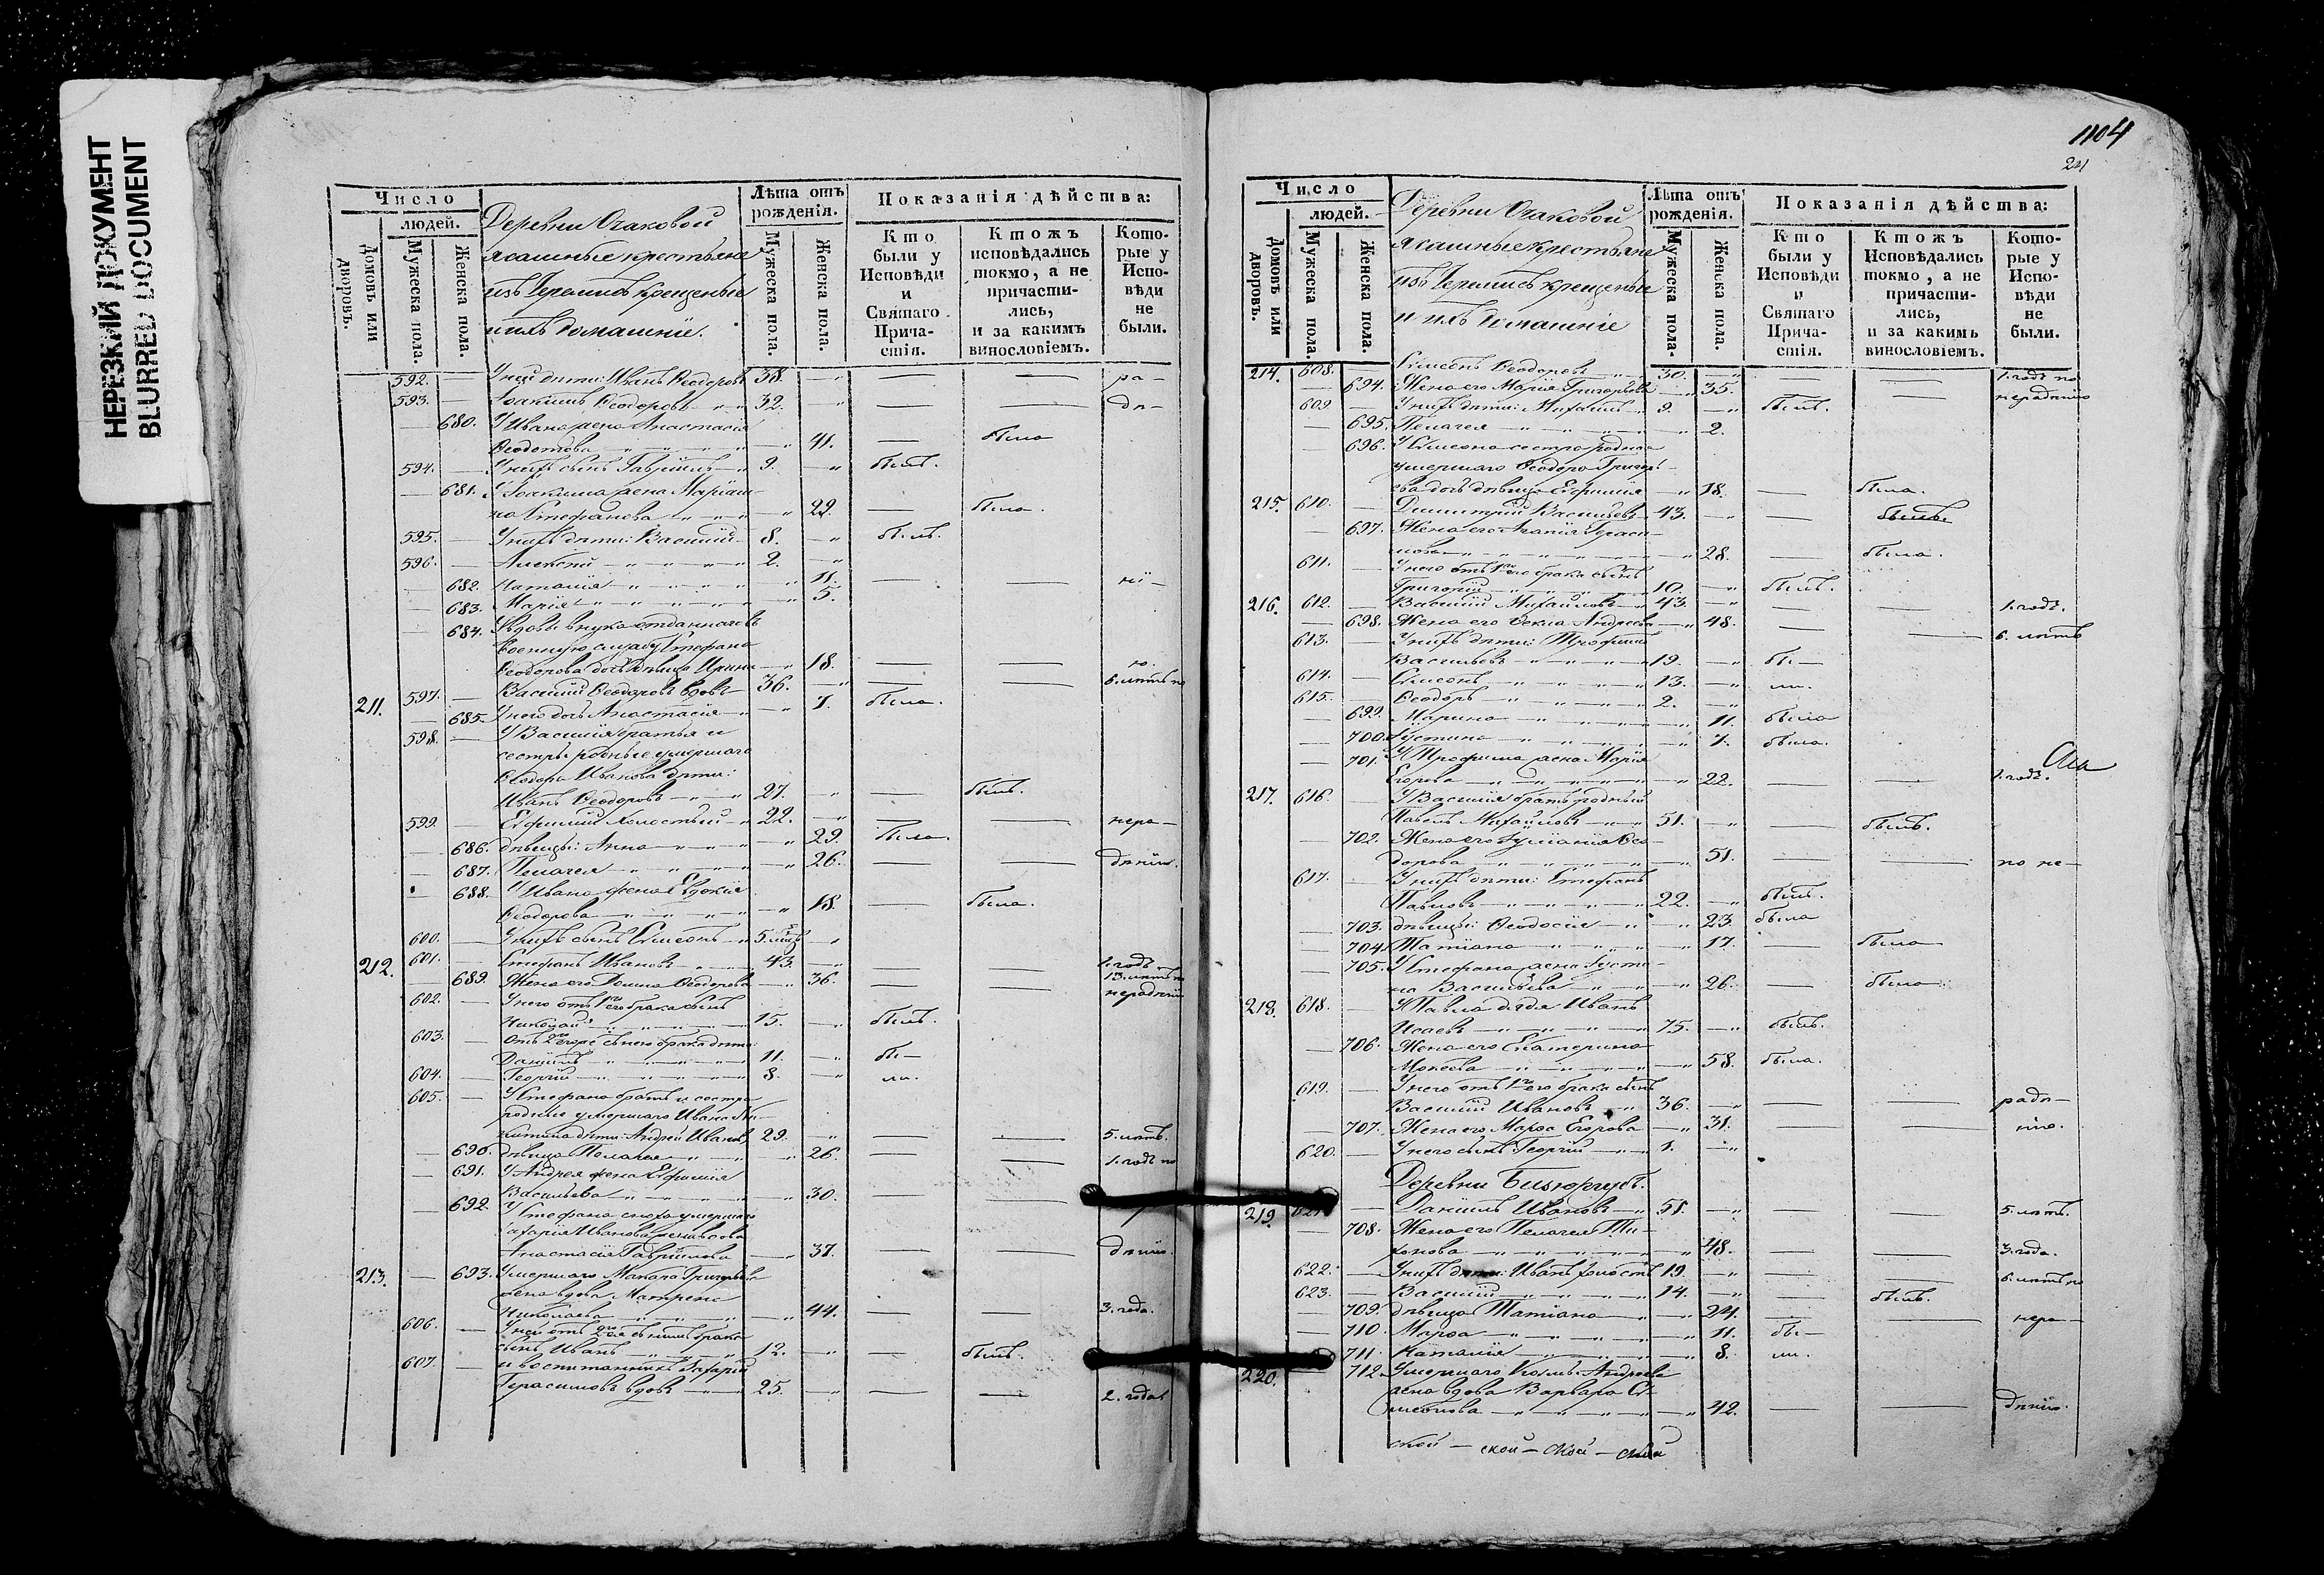 НЕРЕЗКИЙ ДОКУМЕНТ
BLURRED DOCUMENT
Число
людей.
Домовъ или дворовъ.
Мужеска пола.
Женска пола.
Деревни Очаковой
ясашные крестьяне
изъ Черемисъ крещеные
и ихъ домашніе.
Лѣта отъ рожденія.
Мужеска пола.
Женска пола.
Показанія дѣйства:
Кто были у Исповѣди и Святаго Причастія.
Ктожъ исповѣдались токмо, а не причастились, и за какимъ винословіемъ.
Которые у Исповѣди не были.
592. — У ней дѣти: Иванъ Ѳеодоровъ 38. — — — ра-
593. — Іоакимъ Ѳеодоровъ 32. — — — дѣ-
— 680. У Ивана жена Анастасія
Ѳедотова — 41. — была
594. — У нихъ сынъ Гавріилъ 9. — былъ.
— 681. У Іоакима жена Маріам-
на Стефанова — 29. — была.
595. — У нихъ дѣти: Василій 8. — былъ.
596. — Алексѣй 2. —
— 682. Наталія — 11. — — ні-
— 683. Марія — 5.
— 684. У вдовы внука отданнаго въ
военную службу Стефана
Ѳеодорова дочь дѣвица Ирина — 18. — — ю.
211. 597. — Василій Ѳеодоровъ вдовъ 36. — — — 6. лѣтъ по
— 685. У него дочь Анастасія — 7. была.
598. — У Василія братья и
сестры родные умершаго
Ѳеодора Иванова дѣти:
Иванъ Ѳеодоровъ 27. — — былъ.
599. — Евфимій холостый 22. — — — нера-
— 686. дѣвицы: Анна — 29. была.
— 687. Пелагея — 26. — — дѣнію.
— 688. У Ивана жена Евдокія
Ѳеодорова — 18. — была.
600. — У нихъ сынъ Симеонъ 5. мцъ —
212. 601. — Стефанъ Ивановъ 43. — — — 1. годъ
— 689. Жена его Домна Ѳеодорова — 36. — — 13. лѣтъ по
нерадѣнію
602. — У него отъ 1го брака сынъ
Николай 15. — былъ.
603. — отъ 2го съ нею брака дѣти:
Даніилъ 11. — бы-
604. — Георгій 8. — ли.
605. — У Стефана братъ и сестра
родные умершаго Ивана Ни-
китина дѣти: Андрей Ивановъ 29. — — — 5. лѣтъ.
— 690. дѣвица Пелагея — 26. — — 1. годъ по
— 691. У Андрея жена Евфимія
Васильева — 30. — —
— 692. У Стефана сноха умершаго
Захарія Иванова жена вдова
Анастасія Гавріилова — 37. — — дѣнію
213. — 693. Умершаго Макара Григорьева
жена вдова Матрена
Николаева — 44. — — 3. года.
606. — У ней отъ 2го съ нимъ брака
сынъ Иванъ 12. — — былъ.
607. — и воспитанникъ Захарій
Герасимовъ вдовъ 25. — — — 2. года
1104
241
Число
людей.
Домовъ или дворовъ.
Мужеска пола.
Женска пола.
Деревни Очаковой
ясашные крестьяне
изъ Черемисъ крещеные
и ихъ домашніе
Лѣта отъ рожденія.
Мужеска пола.
Женска пола.
Показанія дѣйства:
Кто были у Исповѣди и Святаго Причастія.
Ктожъ Исповѣдались токмо, а не причастились, и за какимъ винословіемъ.
Которые у Исповѣди не были.
214. 608. — Симеонъ Ѳеодоровъ 30. — — — 1. годъ по
— 694. Жена его Марія Григорьева — 35. — — нерадѣнію
609. — У нихъ дѣти: Михаилъ 9. — былъ.
— 695. Пелагея — 2.
— 696. У Симеона сестра родная
умершаго Ѳеодора Григорь-
ева дочь дѣвица Евфимія — 18. — была.
215. 610. — Димитрій Васильевъ 43. — — былъ.
— 697. Жена его Агапія Гераси-
мова — 28. — была.
611. — У него отъ 1го брака сынъ
Григорій 10. — былъ.
216. 612. — Василій Михайловъ 43. — — — 1. годъ.
— 698. Жена его Ѳекла Андреева — 48. — — 6. лѣтъ
613. — У нихъ дѣти: Трофимъ
Васильевъ 19. — бы-
614. — Симеонъ 13. — ли.
615. — Ѳеодоръ 2. —
— 699. Марина — 11. была
— 700. Іустина — 7. была.
— 701. У Трофима жена Марія
Егорова — 22. — — 1. годъ.
217. 616. — У Василія братъ родный
Павелъ Михайловъ 51. — — былъ.
— 702. Жена его Іуліанія Ѳео-
дорова — 51. — — по не-
617. — У нихъ дѣти: Стефанъ
Павловъ 22. — былъ.
— 703. дѣвицы: Ѳеодосія — 23. была
— 704. Татіана — 17. — была
— 705. У Стефана жена Іусти-
на Васильева — 26. — была
218. 618. — У Павла дядя Иванъ
Исаевъ 75. — былъ.
— 706. Жена его Екатерина
Мокеева — 58. была.
619. — У него отъ 1го брака сынъ
Василій Ивановъ 36. — — — радѣ-
— 707. Жена его Марѳа Егорова — 31. — — нію.
620. — У него сынъ Георгій 1. —
Деревни Бизюргубъ.
219. 621. — Даніилъ Ивановъ 51. — — — 5. лѣтъ.
— 708. Жена его Пелагея Ти-
хонова — 48. — — 3. года.
622. — У нихъ дѣти: Иванъ холостъ 19. — — — 6. лѣтъ по
623. — Василій 14. — — былъ.
— 709. дѣвица Татіана — 24. — — нера-
— 710. Марѳа — 11. бы-
— 711. Наталія — 8. ли.
220. — 712. Умершаго Козмы Андреева
жена вдова Варвара Си-
меонова — 42. — — дѣнію.
ской — ской — ской — ской